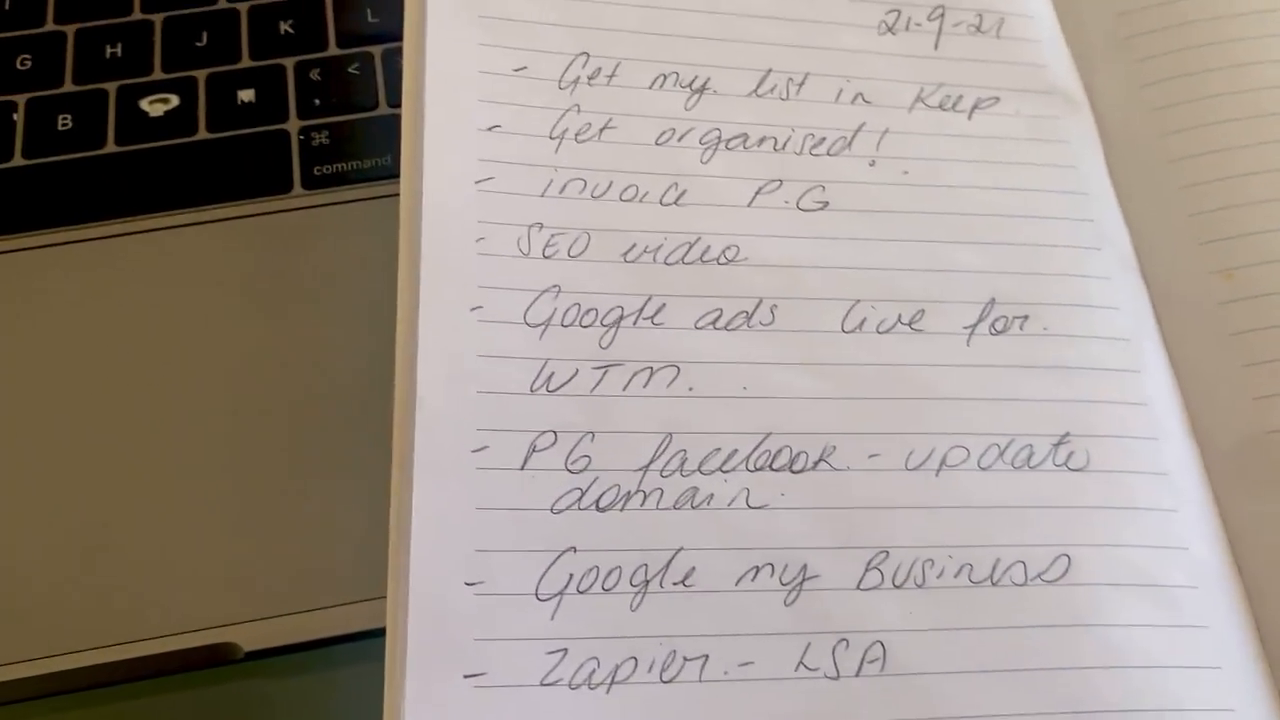 21-9-21
- Get my list in Keep
- Get organised!
- invoice P.G
- SEO video
- Google ads live for
WTM.
- PG facebook - update
domain
- Google my Business
- Zapier - LSA
G H J K L
B M « <
,
⌘
command